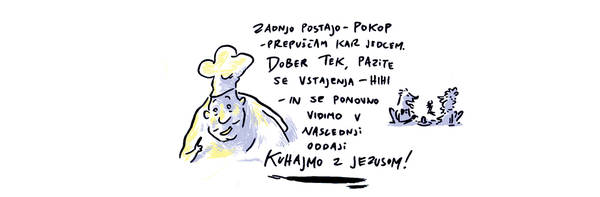 ZADNJO POSTAJO - POKOP
- PREPUŠČAM KAR JEDCEM.
DOBER TEK, PAZITE
SE VSTAJENJA - HIHI
- IN SE PONOVNO
VIDIMO V
NASLEDNJI
ODDAJI
KUHAJMO Z JEZUSOM!